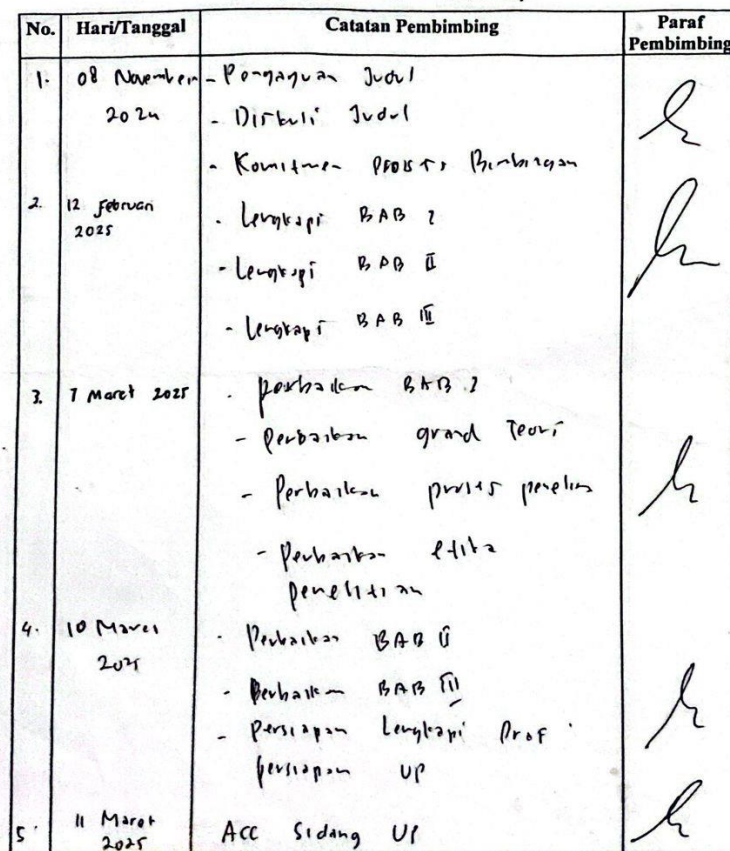 No. Hari/Tanggal Catatan Pembimbing Paraf Pembimbing
1. 08 November 2024 - Pengajuan Judul
- Diskusi Judul
- Komitmen Proses Bimbingan
2. 12 Februari 2025 - Lengkapi BAB I
- Lengkapi BAB II
- Lengkapi BAB III
3. 7 Maret 2025 - perbaikan BAB I
- Perbaikan grand Teori
- Perbaikan proses
- Perbaikan etika
penelitian
4. 10 Maret 2025 - Perbaikan BAB II
- Perbaikan BAB III
- Persiapan Lengkapi
persiapan UP
5. 11 Maret 2025 ACC Sidang UP